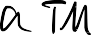 a TM